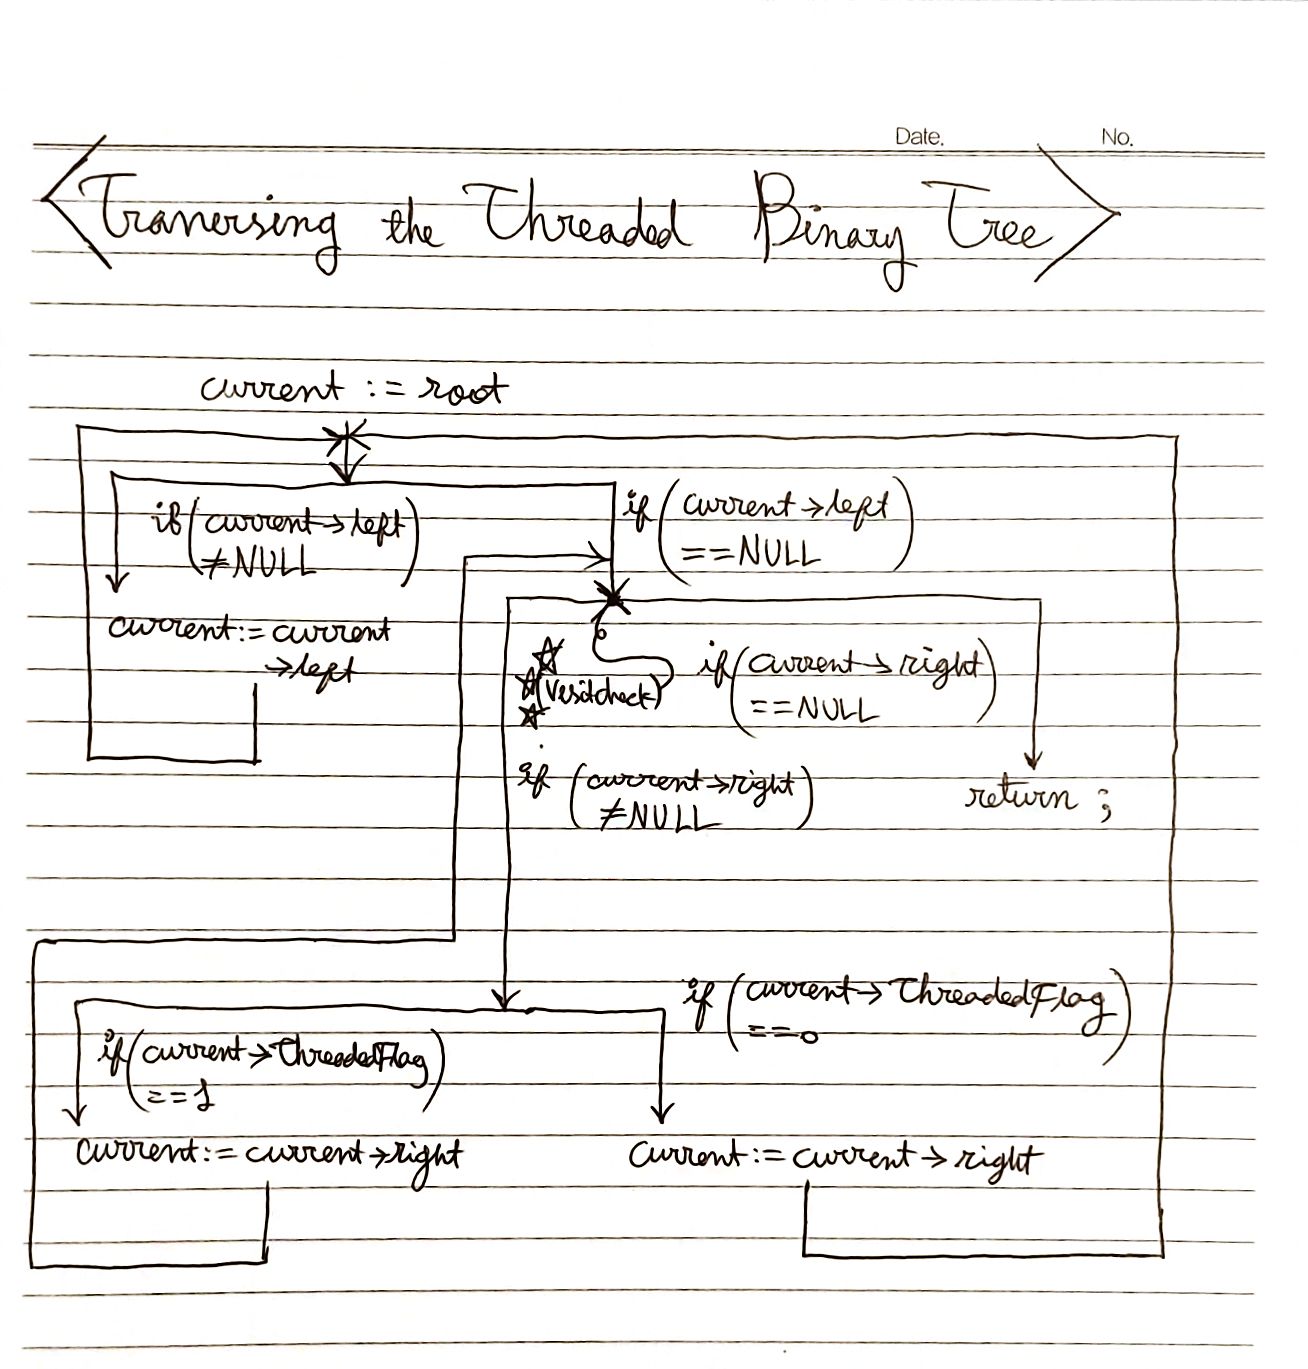 Date. No.
Tranersing the Threaded Binary Tree
current := root
if (current→left)
≠NULL
if (current→left)
==NULL
current:= current
→left
(Vesitcheck)
if (current→right)
==NULL
if (current→right)
≠NULL
return ;
if (current→ThreadedFlag)
==0
if (current→ThreadedFlag)
==1
current:= current→right
current:= current→right